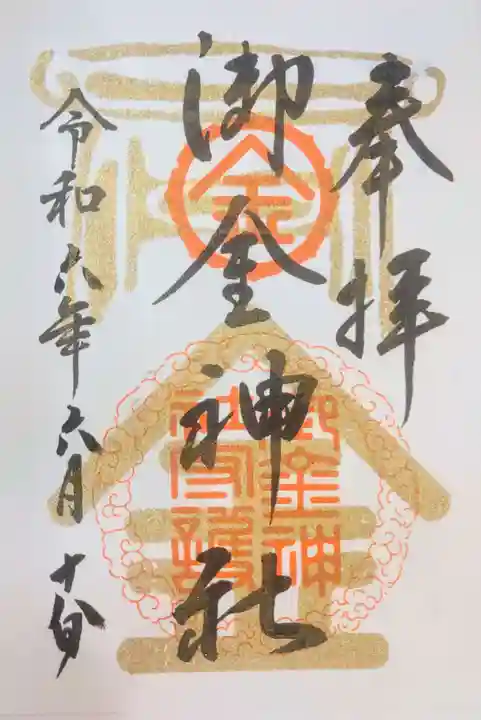 奉拝
御金神社
令和六年六月十四日
金
御金神
社守護